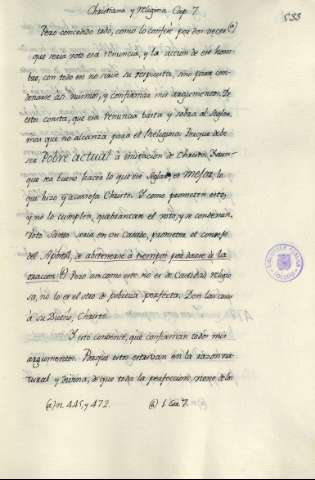 Christiana y Religiosa Cap. 7.
533
Pero concedido todo, como lo confiesa por don secre (a)
que seria voto esa renuncia, y la accion de ese hombre
bao, con todo eso no salva su respuesta, sino para con-
denarse asi mismo, y confirmar mi argumento. De
esto consta, que esa renuncia basta y sobra al seglar,
mas que no alcanza para el Religioso: Porque debe
ser pobre actual á imitacion de Christo. Aun-
que sea bueno hacer lo que ese seglar: es mejor, lo
que hizo y aconseja Christo. Y como prometen esto,
y no lo cumplen, quebrantan el voto, y se condenan.
Voto Santo seria en un Casado, prometer el consejo
del Apostol, de abstenerse á tiempos para darse á la
oracion (b) Pero asi como este no es de Castidad religio
sa, no lo es el otro de pobreza perfecta. Den las cosas
á su Dueño, Christo.
Y esto convence, que confirman todos mis
argumentos. Porque estos estrivan en la razon na-
tural y divina, de que toda la perfeccion, viene de los
(a) n. 445, y 472. (b) 1. Cor. 7.